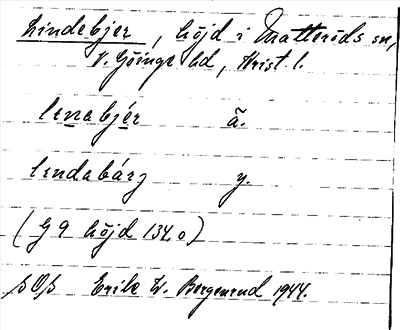 Lindebjer, höjd i Matteröds sn,
V. Göinge hd, Krist. l.
lınabjér ä.
lındabárj y.
(G 9 höjd 134.0)
Erik W. Bergenrud 1944.